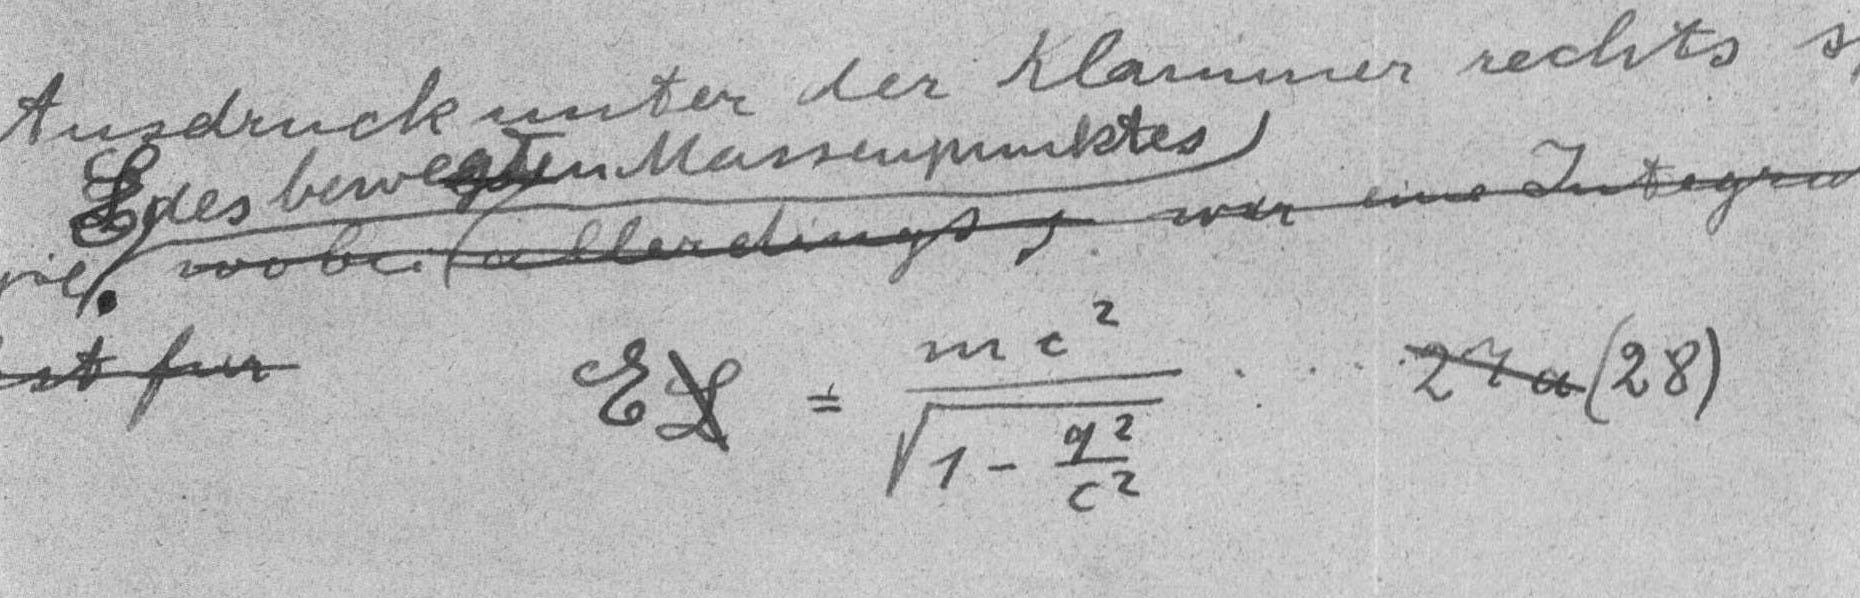 Ausdruck unter der Klammer rechts
E des bewegten Massenpunktes
wobei (allerdings, war eine Integra
st für
E L = mc² / √(1 - q²/c²) . . . . 27a (28)